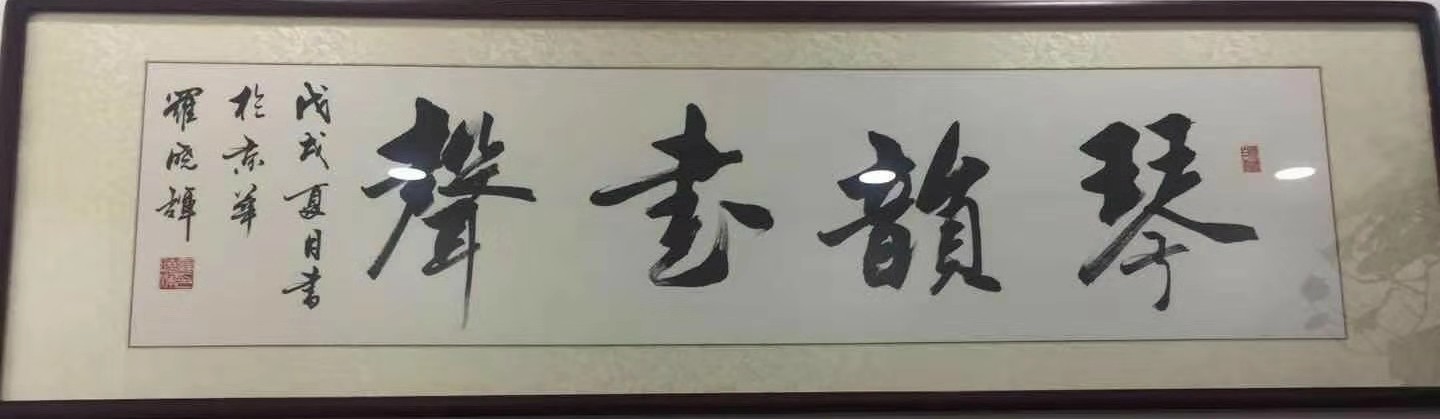 琴韻書聲
戊戌夏月書
於京華
羅曉輝